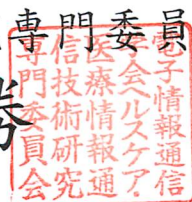 専門委員
子情報通信
会ヘルスケア・
医療情報通
信技術研究
専門委員会